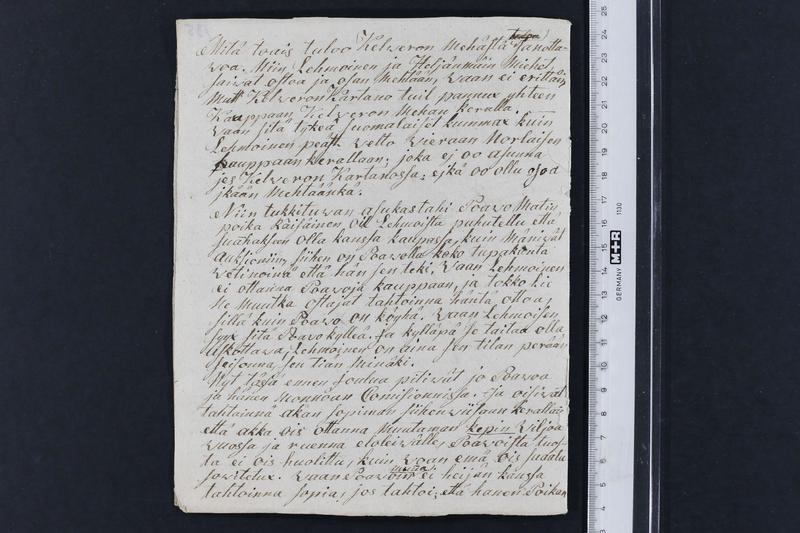 Mitä tvais tuloo Kelveron Mehästä Sanotta-
voa. Niin Lehmoinen ja Heljänmäin Miehet,
saivat ostoa ja osan Mehtään, vaan ei erittäin,
mutt Kelveron Kartano tuil pannux yhteen
Kaappaan Kelveron Mehän keralla.
vaan sitä tykeä Suomalaiset kummax kuin
Lehmoinen peätt velto vieraan Norlaisen
kauppaan kerallaan; joka ej oo asunna
jes Kelveron Kartanossa; ejkä oo ollu osoa
jkään Mehtäänkä.
Niin tukkituvan asukastahi Poavo Matin
poika Räisäinen oil Lehmoista puhutellu että
suahaksen olla kanssa kaupassa, kuin mänivät
Auksioniin, siihen on Poavolla koko tupakunta
vetinoinä että hän sen teki, vaan Lehmoinen
ei ottanna Poavoja kauppaan, ja tokko lie
Ne muutka ostajat tahtoinna häntä ottoa,
sillä kuin Poavo on köyhä. vaan Lehmoisen
syyx sitä Poavo kylleä. Ja kylläpä se taitaa olla
Uskottava, Lehmoinen on aina sen tilan perään
seisonna, sen tiän Minäki.
Nyt tässä ennen Joulua pitivät jo Poavoa
ja hänen Monnoan Comisionnissa. Ja oisivat
tahtoinna akan sopimaan siihen viisiin kerallaan
että akka ois ottanna muutaman kepin Viljoa
vuossa ja ruenna eloteivälle, Poavosta tuos-
ta ei ois huolittu, kuin vaan emä ois suatu
sovitelux. vaan Poavon muija ei heijän kanssa
tahtoinna sopia, jos tahtoi, että hänen Poikan
25 24 23 22 21 20 19 18 17 16 15 14 13 12 11 10 9 8 7 6 5 4 3 2 1
GERMANY M+R 1130